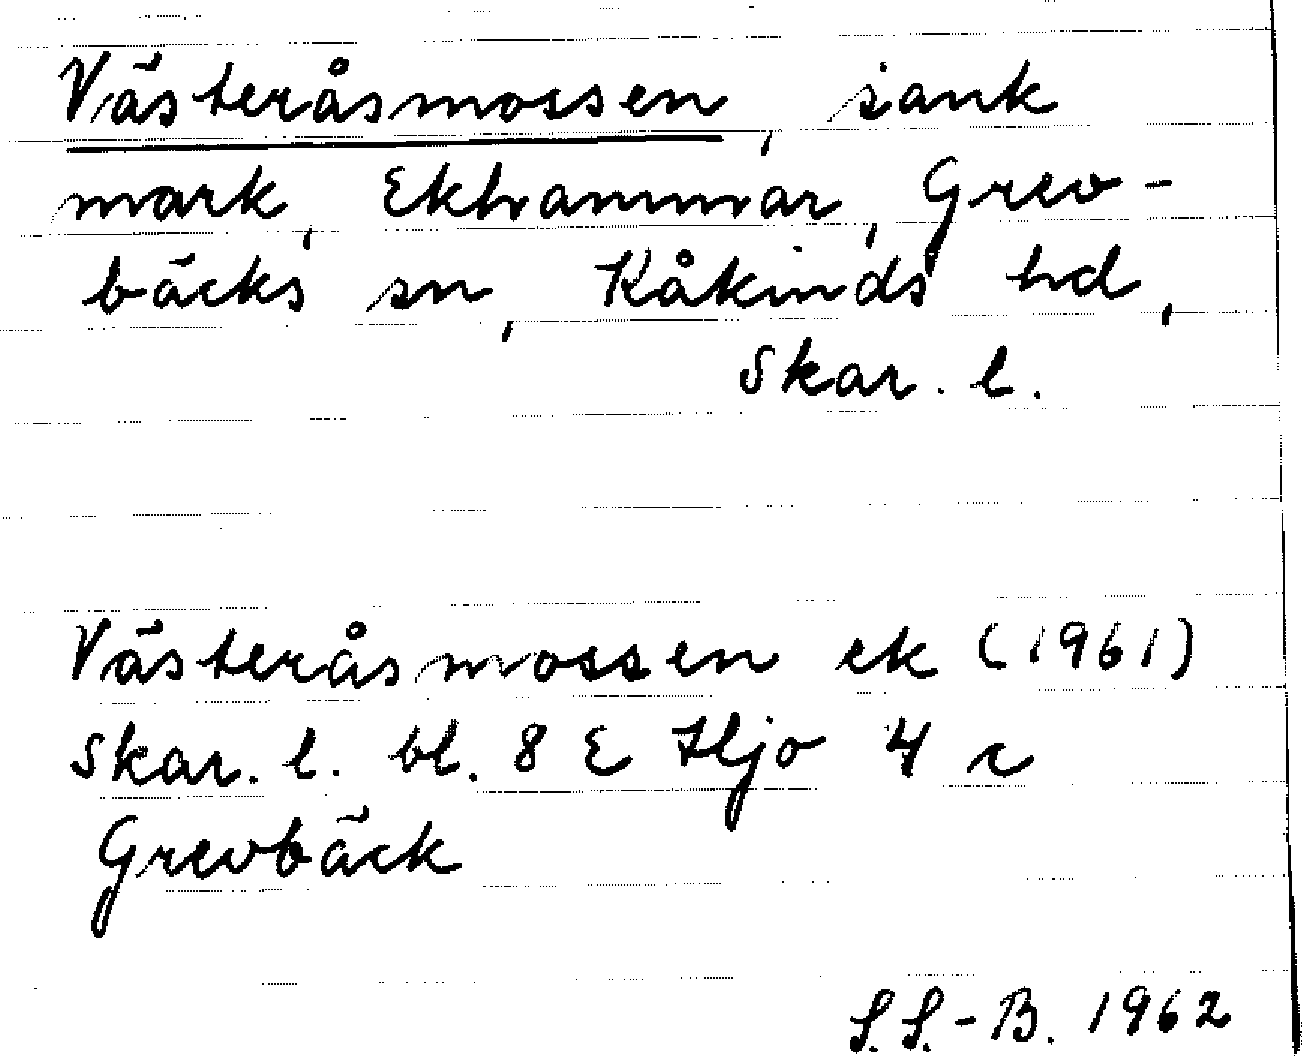 Västeråsmossen, sank
mark, Ekhammar, Grev-
bäcks sn, Kåkinds hd,
Skar. l.
Västeråsmossen ek (1961)
Skar. l. bl. 8 E Hjo 4 c
Grevbäck
S.S.-B. 1962